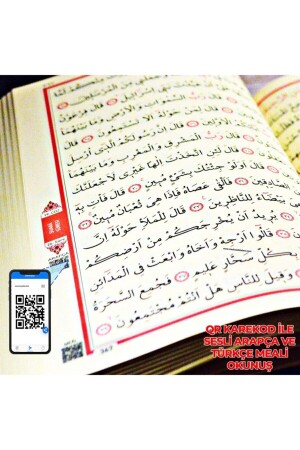 قَالَ فِرْعَوْنُ
رَبُّ السَّمٰوَاتِ وَالْاَرْضِ وَمَا بَيْنَهُمَا
قَالَ لِمَنْ حَوْلَهُٓ اَلَا تَسْتَمِعُونَ قَالَ
الْاَوَّلٖينَ قَالَ اِنَّ رَسُولَكُمُ الَّذٖٓي اُرْسِلَ
قَالَ رَبُّ الْمَشْرِقِ وَالْمَغْرِبِ وَمَا بَيْنَهُمَا
قَالَ لَئِنِ اتَّخَذْتَ اِلٰهًا غَيْرٖي لَاَجْعَلَنَّكَ
قَالَ اَوَلَوْ جِئْتُكَ بِشَيْءٍ مُبٖينٍ قَالَ فَأْتِ بِهٖٓ
الصَّادِقٖينَ فَاَلْقٰى عَصَاهُ فَاِذَا هِيَ ثُعْبَانٌ مُبٖينٌ
بَيْضَٓاءُ لِلنَّاظِرٖينَ قَالَ لِلْمَلَاِ حَوْلَهُٓ اِنَّ
يُرٖيدُ اَنْ يُخْرِجَكُمْ مِنْ اَرْضِكُمْ
قَالُٓوا اَرْجِهْ وَاَخَاهُ وَابْعَثْ فِي الْمَدَٓائِنِ
بِكُلِّ سَحَّارٍ عَلٖيمٍ فَجُمِعَ السَّحَرَةُ
وَقٖيلَ لِلنَّاسِ هَلْ اَنْتُمْ مُجْتَمِعُونَ
367
QR KAREKOD İLE
SESLİ ARAPÇA VE
TÜRKÇE MEALİ
OKUNUŞ